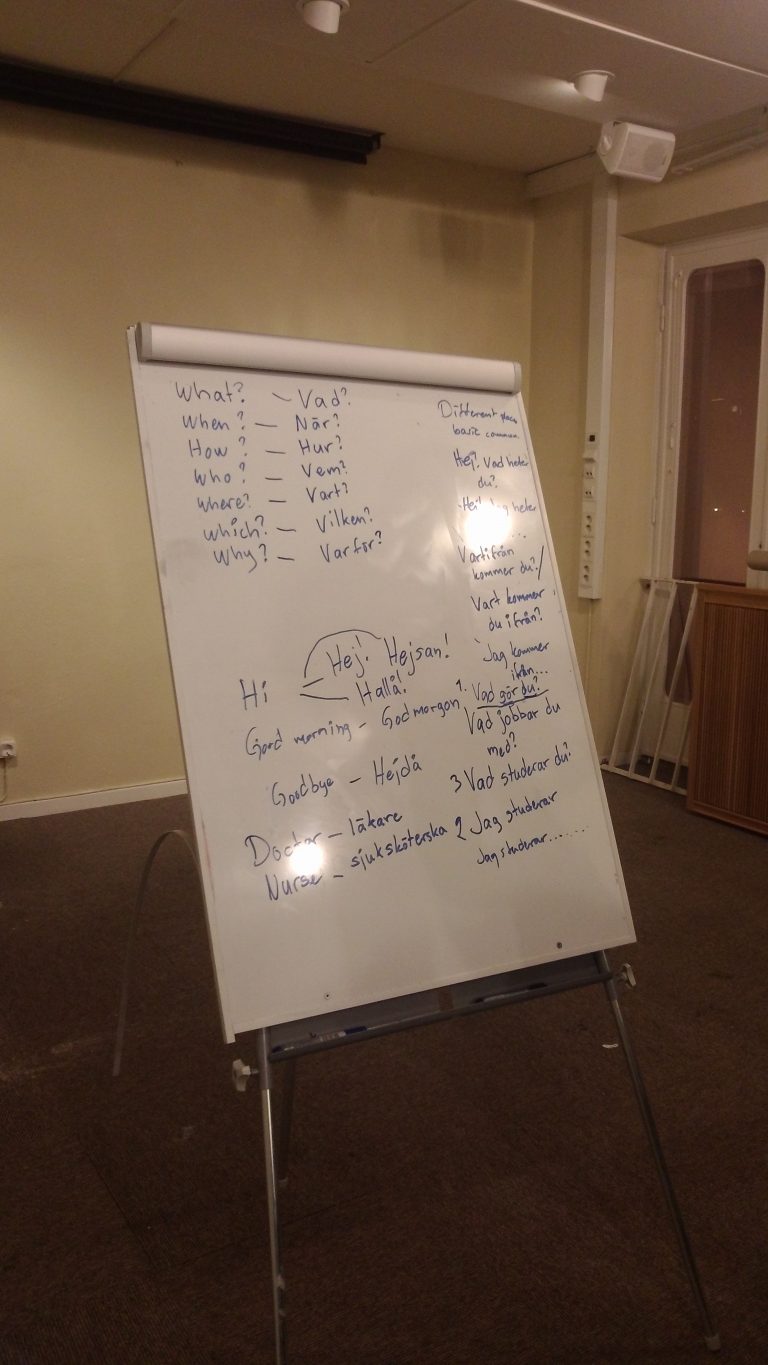 What? - Vad?
When? - När?
How? - Hur?
Who? - Vem?
where? - Vart?
which? - Vilken?
Why? - Varför?
Hi - Hej! Hejsan!
Hallå!
Good morning - Godmorgon
Goodbye - Hejdå
Doctor - läkare
Nurse - sjuksköterska
Different
basic commun.
Hej! Vad heter
du?
Hej! Jag heter
....
Vartifrån
kommer du?/
Vart kommer
du ifrån?
Jag kommer
ifrån...
1. Vad gör du?
Vad jobbar du
med?
3 Vad studerar du?
2 Jag studerar
Jag studerar........